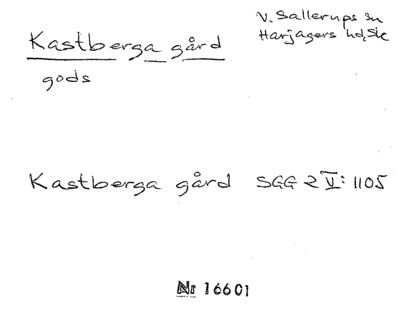 V. Sallerups sn
Harjagers hd, Sk
Kastberga gård
gods
Kastberga gård SGG 2 V: 1105
Nr 16601